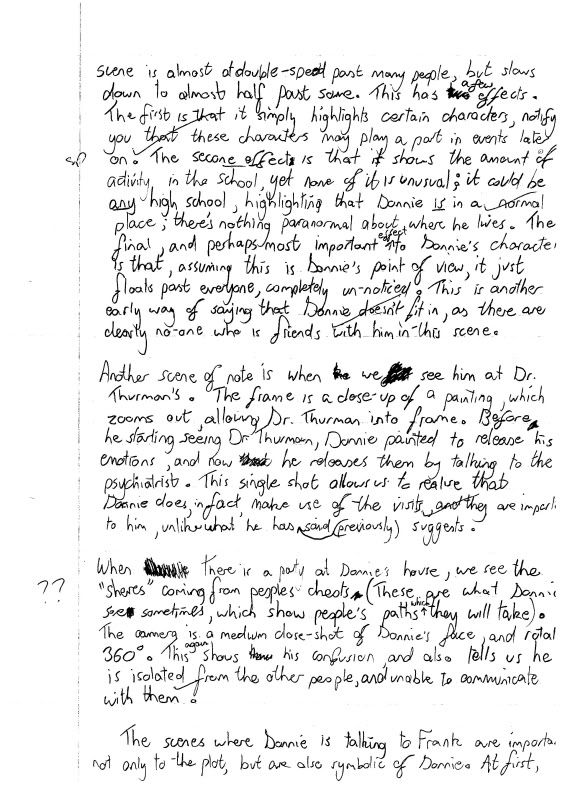 scene is almost at double-speed past many people, but slows
down to almost half past some. This has a few effects.
The first is that it simply highlights certain characters, notify
you that these characters may play a part in events late
sp on. The second effects is that it shows the amount of
activity in the school, yet none of it is unusual; it could be
any high school, highlighting that Donnie is in a normal
place; there's nothing paranormal about where he lives. The
final, and perhaps most important effect into Donnie's characte
is that, assuming this is Donnie's point of view, it just
floats past everyone, completely un-noticed. This is another
early way of saying that Donnie doesn't fit in, as there are
clearly no-one who is friends with him in this scene.
Another scene of note is when we see him at Dr.
Thurman's. The frame is a close-up of a painting, which
zooms out, allowing Dr. Thurman into frame. Before
he starting seeing Dr Thurman, Donnie painted to release his
emotions, and now he releases them by talking to the
psychiatrist. This single shot allows us to realise that
Donnie does, in fact, make use of the visits, and they are import
to him, unlike what he has said (previously) suggests.
When there is a party at Donnie's house, we see the
?? "spheres" coming from peoples chests (These are what Donnie
see sometimes, which show people's paths which they will take).
The camera is a medium close-shot of Donnie's face, and rotat
360°. This again shows his confusion, and also tells us he
is isolated from the other people, and unable to communicate
with them.
The scenes where Donnie is talking to Frank are importa
not only to the plot, but are also symbolic of Donnie. At first,